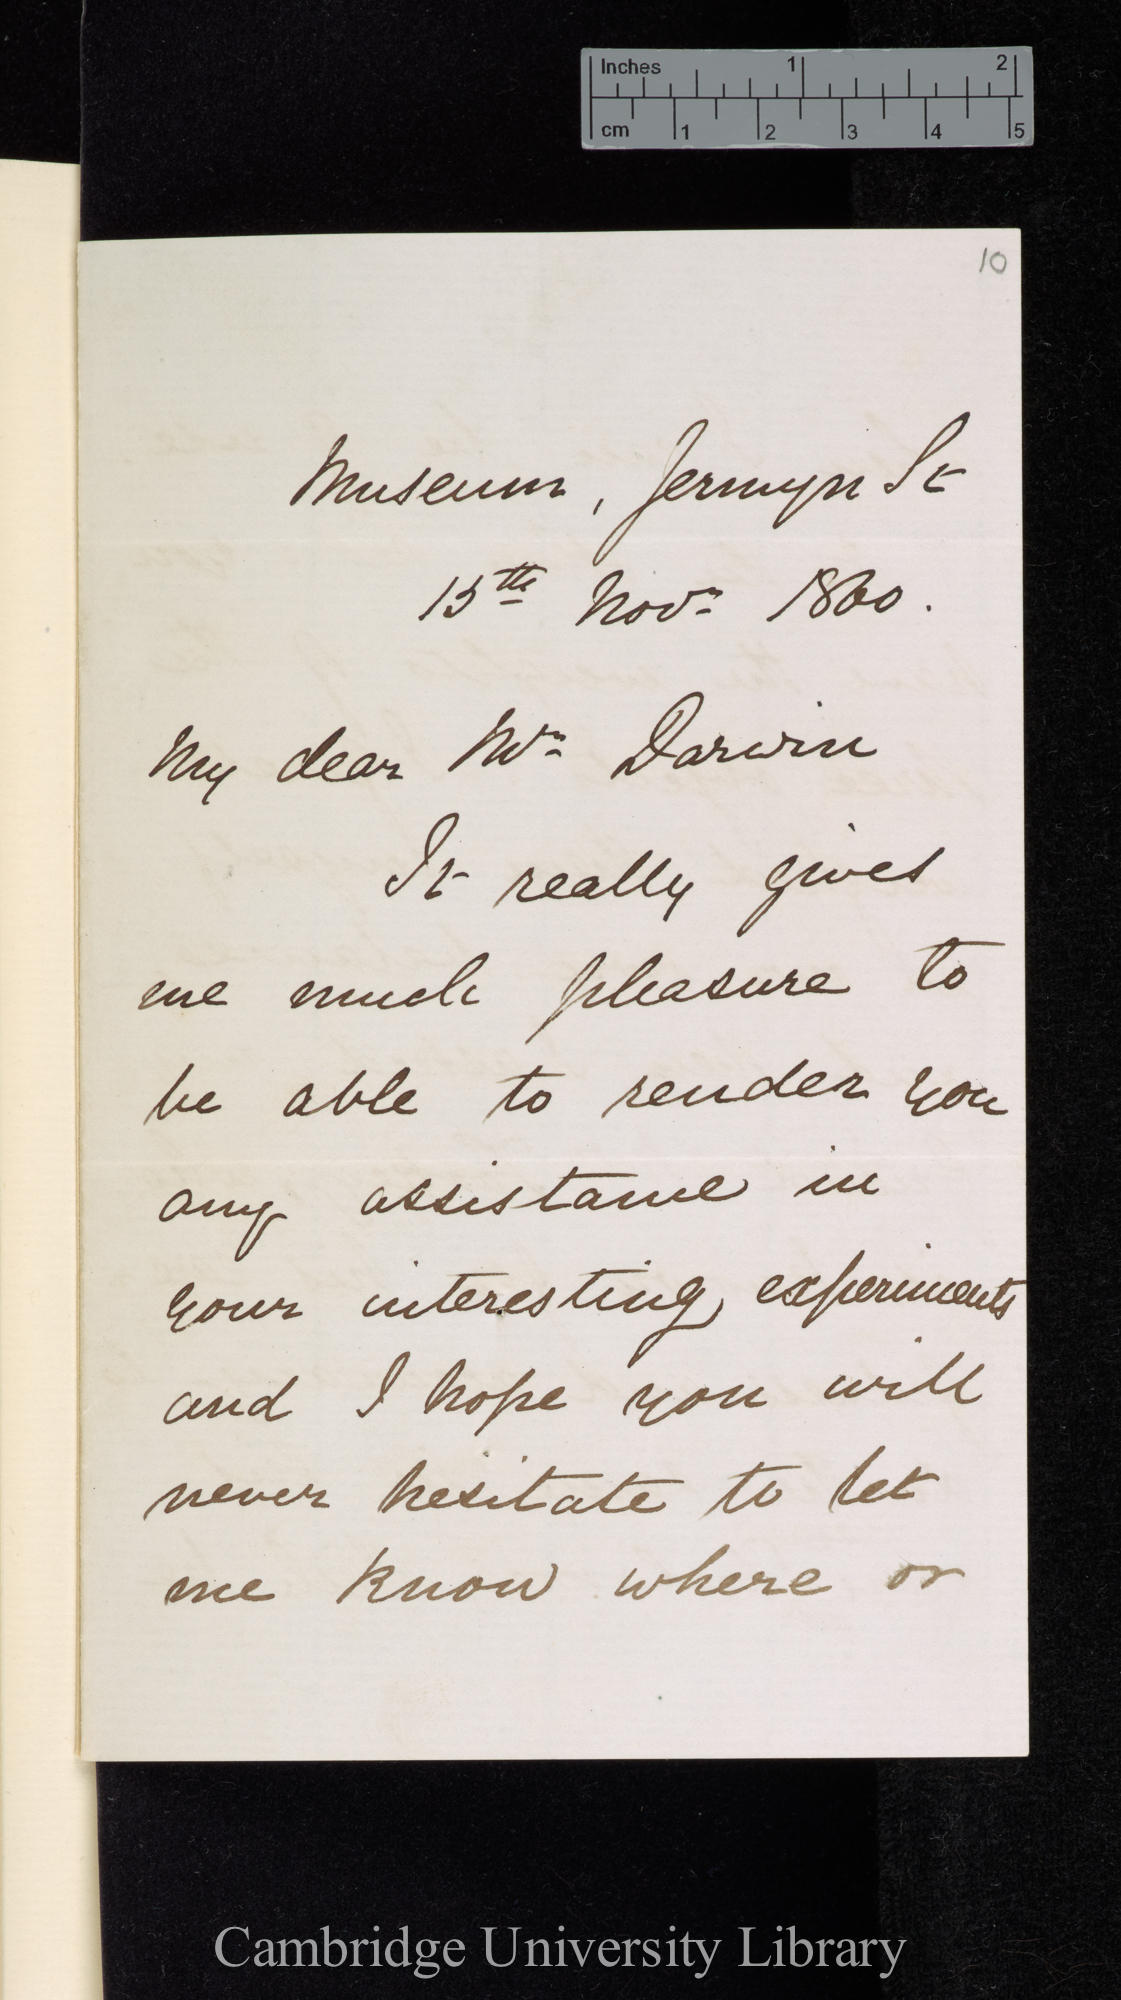 Inches 1 2
cm 1 2 3 4 5
10
Museum, Jermyn St
15th Novr 1860.
My dear Mr Darwin
It really gives
me much pleasure to
be able to render you
any assistance in
your interesting experiments
and I hope you will
never hesitate to let
me know where or
Cambridge University Library